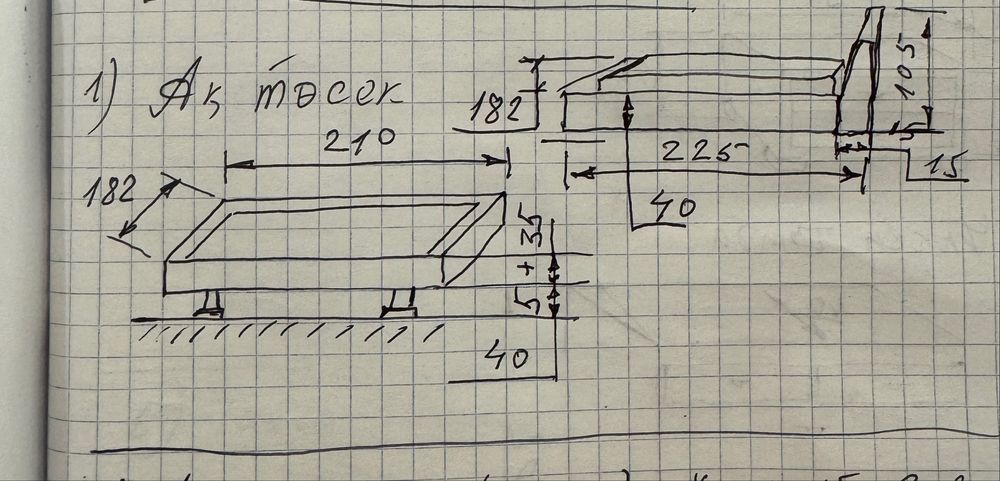 1) Ақ төсек
210
182
5 + 35
40
182
225
40
105
15